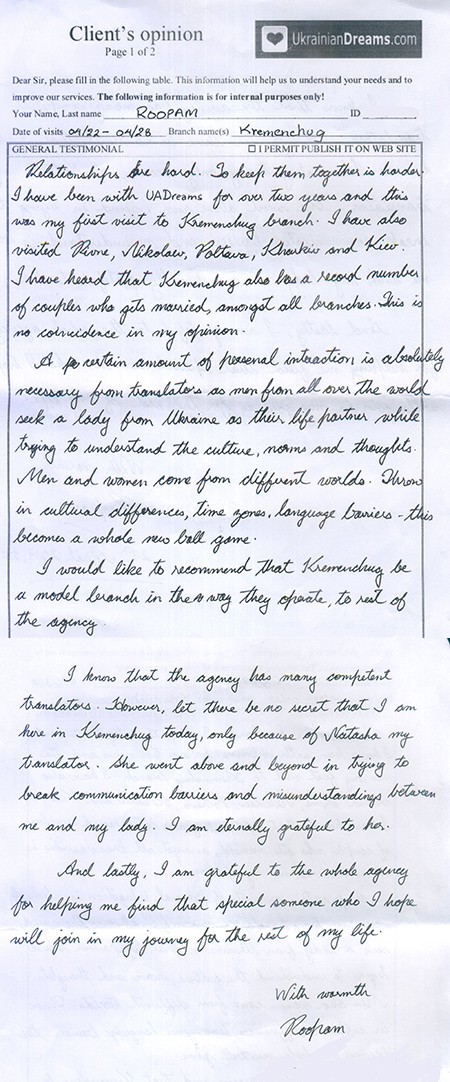 Client's opinion
Page 1 of 2
UkrainianDreams.com
Dear Sir, please fill in the following table. This information will help us to understand your needs and to
improve our services. The following information is for internal purposes only!
Your Name, Last name ROOPAM ID
Date of visits 04/22 - 04/28 Branch name(s) Kremenchug
GENERAL TESTIMONIAL ☐ I PERMIT PUBLISH IT ON WEB SITE
Relationships are hard. To keep them together is harder.
I have been with UADreams for over two years and this
was my first visit to Kremenchug branch. I have also
visited Rivne, Nikolaev, Poltava, Kharkiv and Kiev.
I have heard that Kremenchug also has a record number
of couples who gets married, amongst all branches. This is
no coincidence in my opinion.
A certain amount of personal interaction is absolutely
necessary from translators as men from all over the world
seek a lady from Ukraine as their life partner while
trying to understand the culture, norms and thoughts.
Men and women come from different worlds. Throw
in cultural differences, time zones, language barriers - this
becomes a whole new ball game.
I would like to recommend that Kremenchug be
a model branch in the way they operate, to rest of
the agency.
I know that the agency has many competent
translators. However, let there be no secret that I am
here in Kremenchug today, only because of Natasha my
translator. She went above and beyond in trying to
break communication barriers and misunderstandings between
me and my lady. I am eternally grateful to her.
And lastly, I am grateful to the whole agency
for helping me find that special someone who I hope
will join in my journey for the rest of my life.
With warmth
Roopam